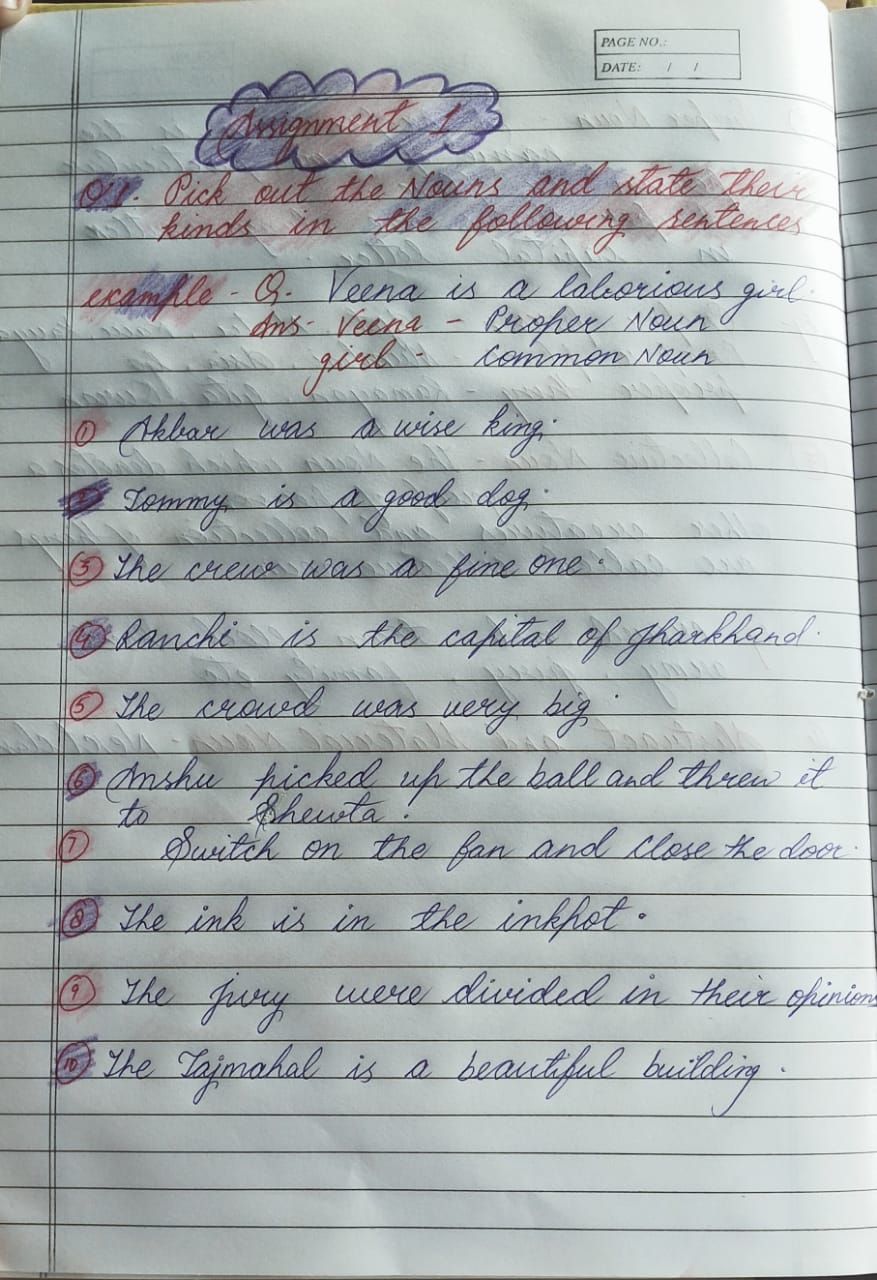 PAGE NO.:
DATE: / /
Assignment 1
Q1. Pick out the Nouns and state their
kinds in the following sentences
example - Q. Veena is a laborious girl.
Ans- Veena - Proper Noun
girl - Common Noun
① Akbar was a wise king.
② Tommy is a good dog.
③ The crew was a fine one.
④ Ranchi is the capital of Jharkhand.
⑤ The crowd was very big.
⑥ Anshu picked up the ball and threw it
to Shewta.
⑦ Switch on the fan and close the door.
⑧ The ink is in the inkpot.
⑨ The jury were divided in their opinions
⑩ The Tajmahal is a beautiful building.